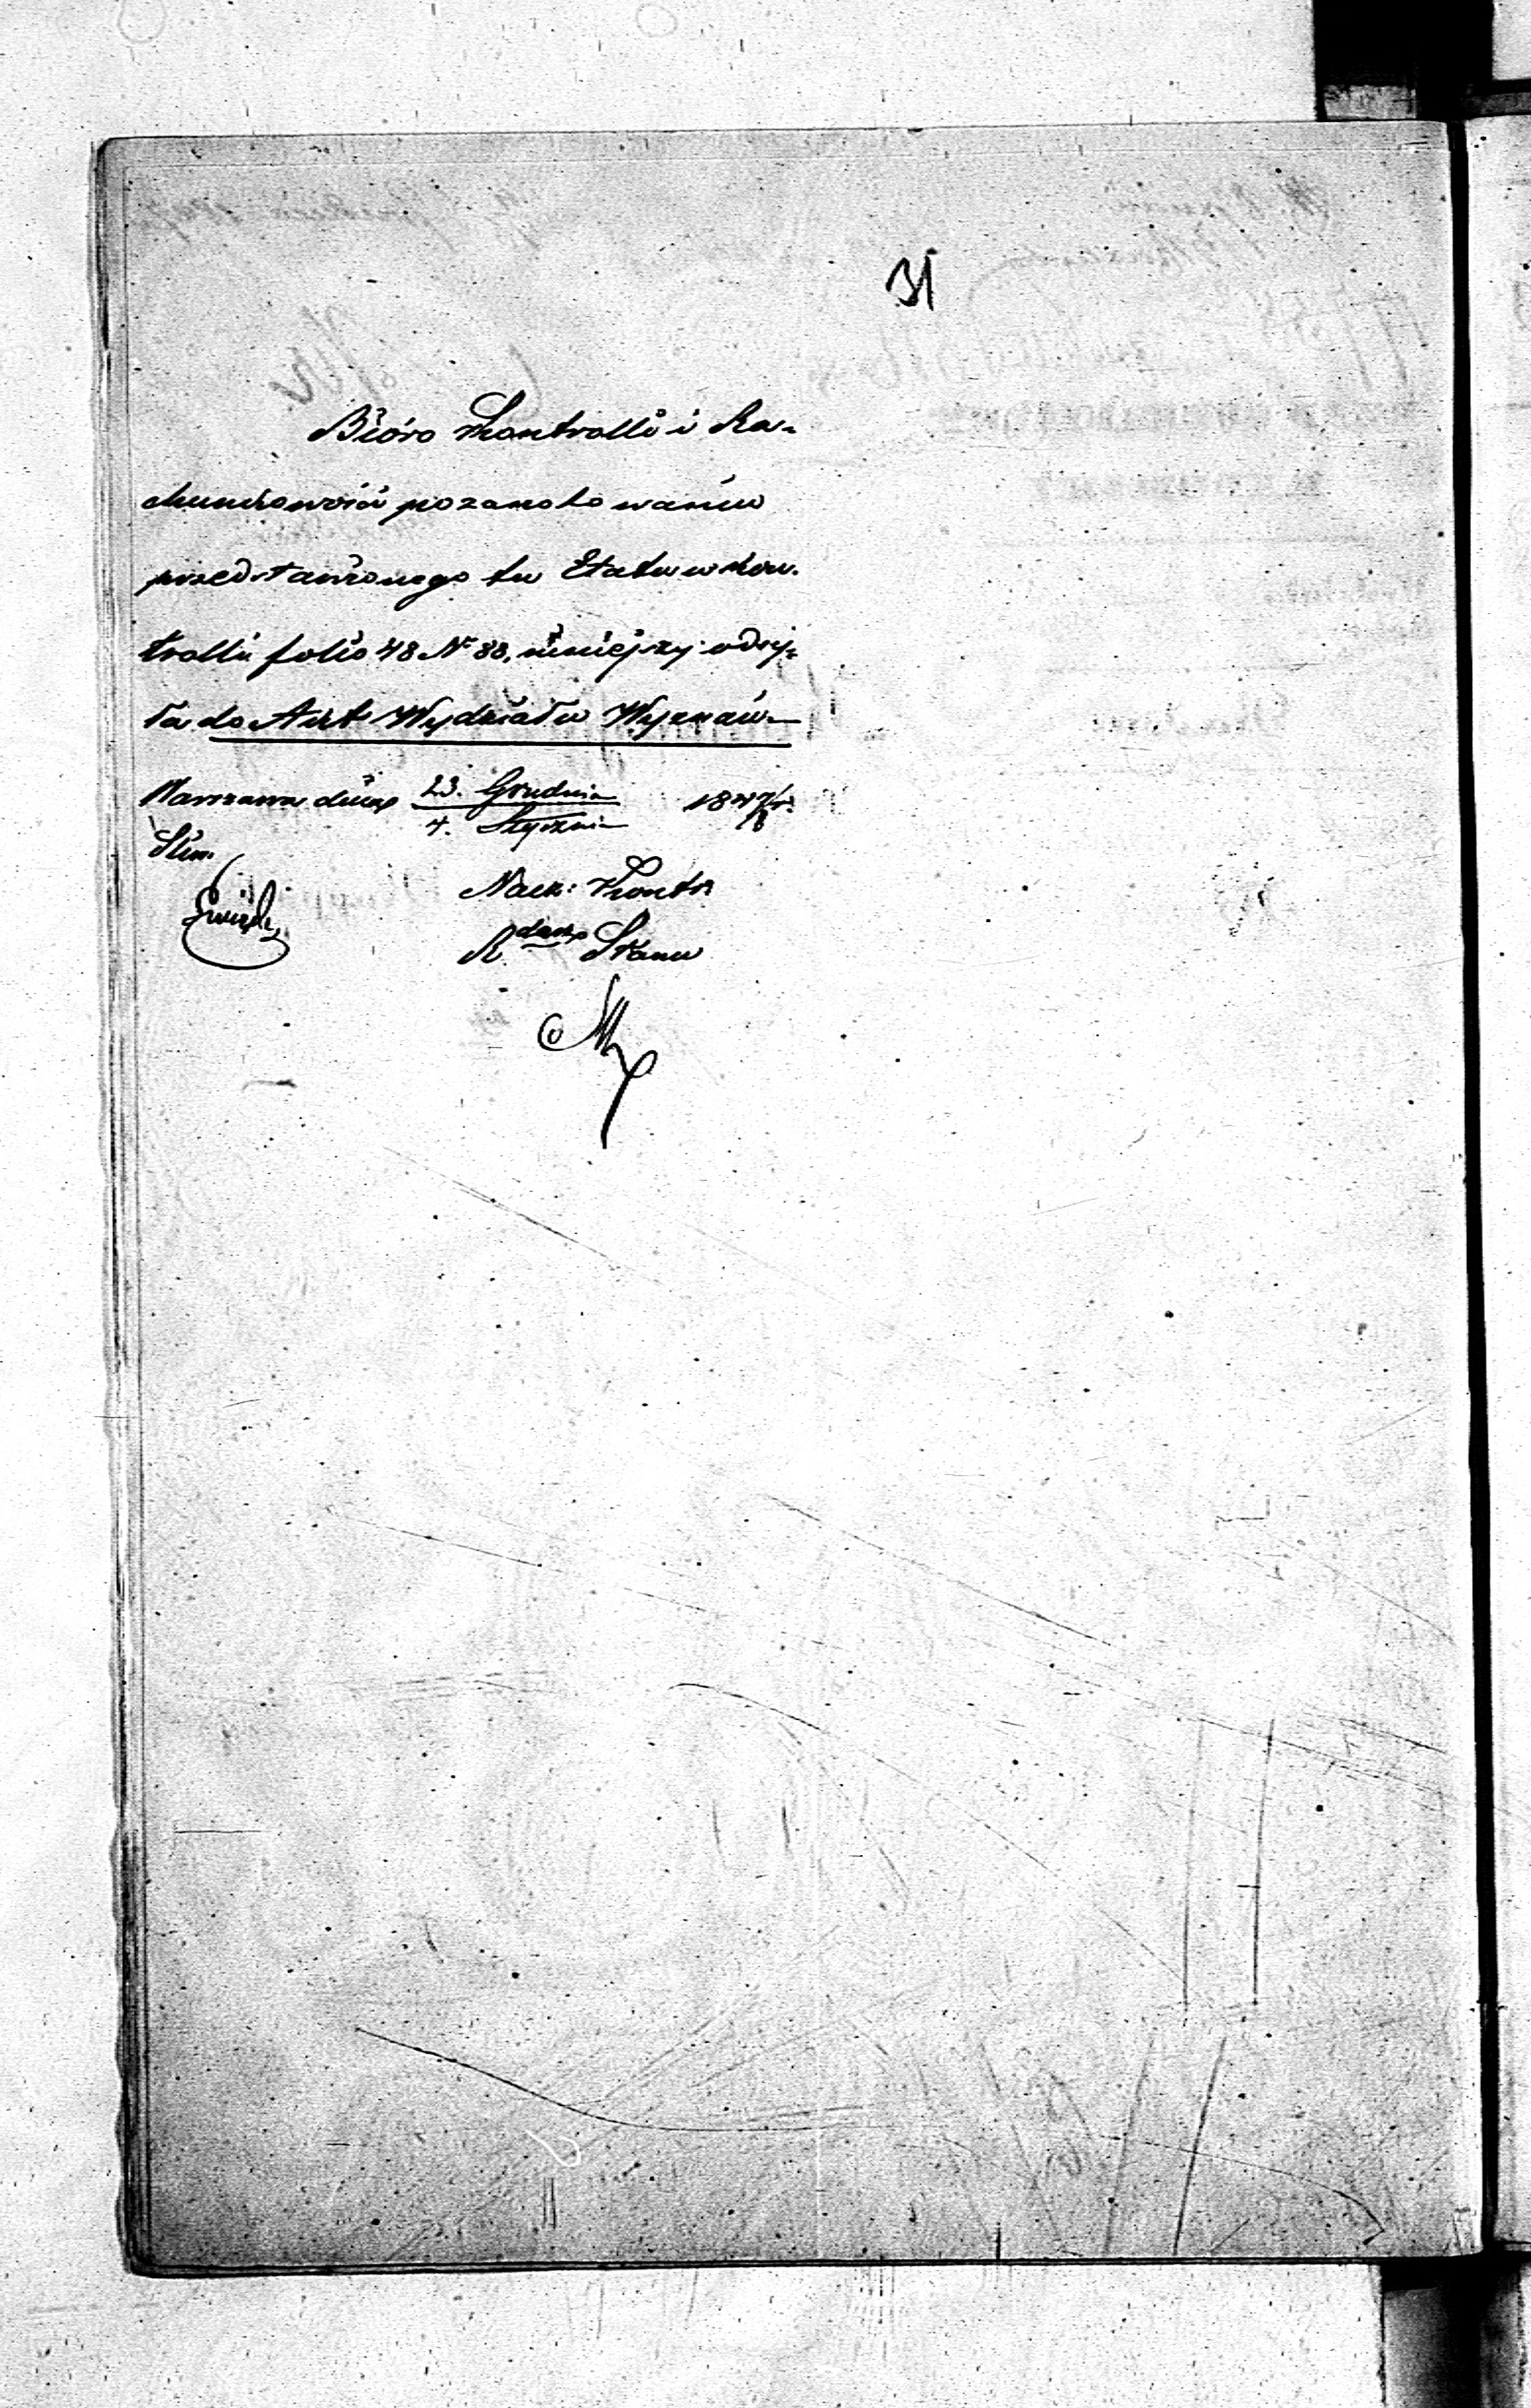 31
Bióro Kontrolli i Ra-
chunkowości po zanotowaniu
przedstawionego tu Etatu w Kon-
trolli folio 48 Nr 88, niniejszy odsy-
ła do Akt Wydziału Wyznań
Warszawa dnia 23. Grudnia 1847/8 r.
4. Stycznia
Nacz: Kontr
R. Stanu